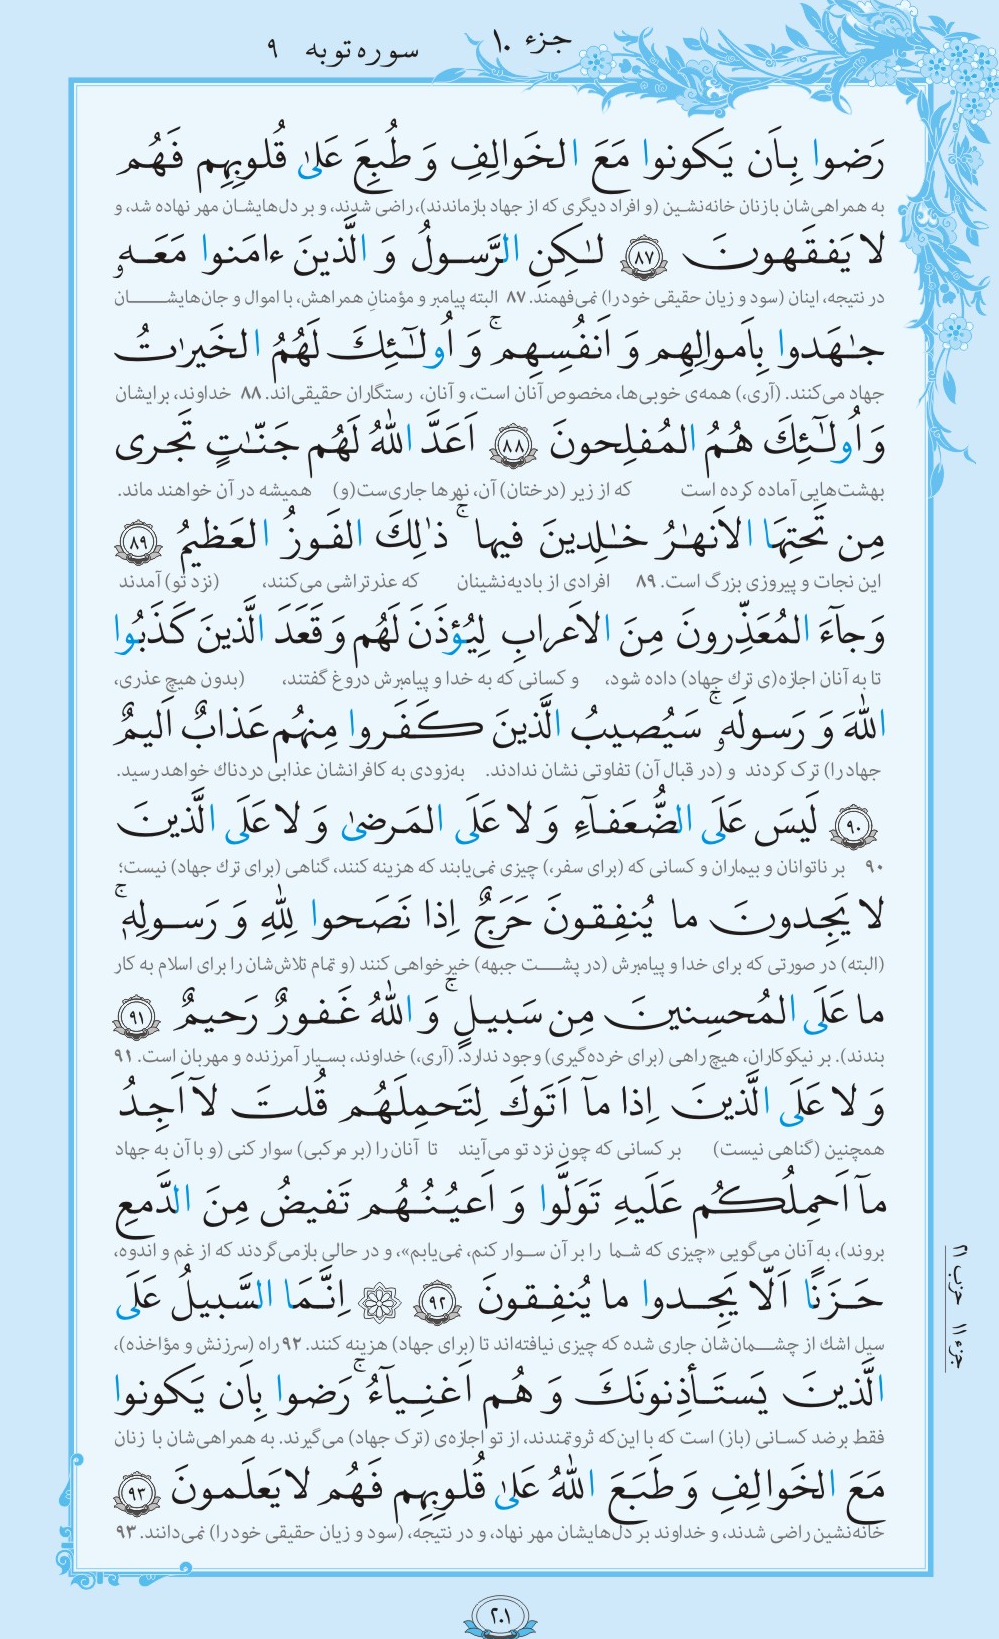 جزء ۱۰
سوره توبه ۹
رَضوا بِاَن يَكونوا مَعَ الخَوالِفِ وَ طُبِعَ عَلىٰ قُلوبِهِم فَهُم
به همراهی‌شان با زنان خانه‌نشین (و افراد دیگری که از جهاد بازماندند)، راضی شدند، و بر دل‌هایشان مهر نهاده شد، و
لا يَفقَهونَ ﴿۸۷﴾ لـٰكِنِ الرَّسولُ وَ الَّذينَ ءامَنوا مَعَهۥ
در نتیجه، اینان (سود و زیان حقیقی خود را) نمی‌فهمند. ۸۷ البته پیامبر و مؤمنانِ همراهش، با اموال و جان‌هایشان
جـٰهَدوا بِاَموالِهِم وَ اَنفُسِهِم ۚ وَ اُولـٰٓئِكَ لَهُمُ الخَيراتُ
جهاد می‌کنند. (آری،) همه‌ی خوبی‌ها، مخصوص آنان است، و آنان، رستگاران حقیقی‌اند. ۸۸ خداوند، برایشان
وَ اُولـٰٓئِكَ هُمُ المُفلِحونَ ﴿۸۸﴾ اَعَدَّ اللّٰهُ لَهُم جَنّـٰتٍ تَجرى
بهشت‌هایی آماده کرده است که از زیر (درختان) آن، نهرها جاری‌ست (و) همیشه در آن خواهند ماند.
مِن تَحتِهَا الاَنهـٰرُ خـٰلِدينَ فيها ۚ ذٰلِكَ الفَوزُ العَظيمُ ﴿۸۹﴾
این نجات و پیروزی بزرگ است. ۸۹ افرادی از بادیه‌نشینان که عذرتراشی می‌کنند، (نزد تو) آمدند
وَ جآءَ المُعَذِّرونَ مِنَ الاَعرابِ لِيُؤذَنَ لَهُم وَ قَعَدَ الَّذينَ كَذَبُوا
تا به آنان اجازه(ی ترك جهاد) داده شود، و کسانی که به خدا و پیامبرش دروغ گفتند، (بدون هیچ عذری،
اللّٰهَ وَ رَسولَهۥ ۚ سَيُصيبُ الَّذينَ كَفَروا مِنهُم عَذابٌ اَليمٌ
جهاد را) ترک کردند و (در قبال آن) تفاوتی نشان ندادند. به‌زودی به کافرانشان عذابی دردناك خواهد رسید.
﴿۹۰﴾ لَيسَ عَلَى الضُّعَفآءِ وَ لا عَلَى المَرضىٰ وَ لا عَلَى الَّذينَ
۹۰ بر ناتوانان و بیماران و کسانی که (برای سفر،) چیزی نمی‌یابند که هزینه کنند، گناهی (برای ترك جهاد) نیست؛
لا يَجِدونَ ما يُنفِقونَ حَرَجٌ اِذا نَصَحوا لِلّٰهِ وَ رَسولِهٖ ۚ
(البته) در صورتی که برای خدا و پیامبرش (در پشت جبهه) خیرخواهی کنند (و تمام تلاش‌شان را برای اسلام به کار
ما عَلَى المُحسِنينَ مِن سَبيلٍ ۚ وَ اللّٰهُ غَفورٌ رَحيمٌ ﴿۹۱﴾
بندند). بر نیکوکاران، هیچ راهی (برای خرده‌گیری) وجود ندارد. (آری،) خداوند، بسیار آمرزنده و مهربان است. ۹۱
وَ لا عَلَى الَّذينَ اِذا مآ اَتَوكَ لِتَحمِلَهُم قُلتَ لآ اَجِدُ
همچنین (گناهی نیست) بر کسانی که چون نزد تو می‌آیند تا آنان را (بر مرکبی) سوار کنی (و با آن به جهاد
مآ اَحمِلُكُم عَلَيهِ تَوَلَّوا وَ اَعيُنُهُم تَفيضُ مِنَ الدَّمعِ
بروند)، به آنان می‌گویی «چیزی که شما را بر آن سوار کنم، نمی‌یابم»، و در حالی بازمی‌گردند که از غم و اندوه،
حَزَنًا اَلّا يَجِدوا ما يُنفِقونَ ﴿۹۲﴾ ۞ اِنَّمَا السَّبيلُ عَلَى
سیل اشك از چشمان‌شان جاری شده که چیزی نیافته‌اند تا (برای جهاد) هزینه کنند. ۹۲ راه (سرزنش و مؤاخذه)،
الَّذينَ يَستَأذِنونَكَ وَ هُم اَغنِيآءُ ۚ رَضوا بِاَن يَكونوا
فقط بر ضد کسانی (باز) است که با این‌که ثروتمندند، از تو اجازه‌ی (ترک جهاد) می‌گیرند. به همراهی‌شان با زنان
مَعَ الخَوالِفِ وَ طَبَعَ اللّٰهُ عَلىٰ قُلوبِهِم فَهُم لا يَعلَمونَ ﴿۹۳﴾
خانه‌نشین راضی شدند، و خداوند بر دل‌هایشان مهر نهاد، و در نتیجه، (سود و زیان حقیقی خود را) نمی‌دانند. ۹۳
حزب ۲۱
جزء ۱۱
۲۰۱